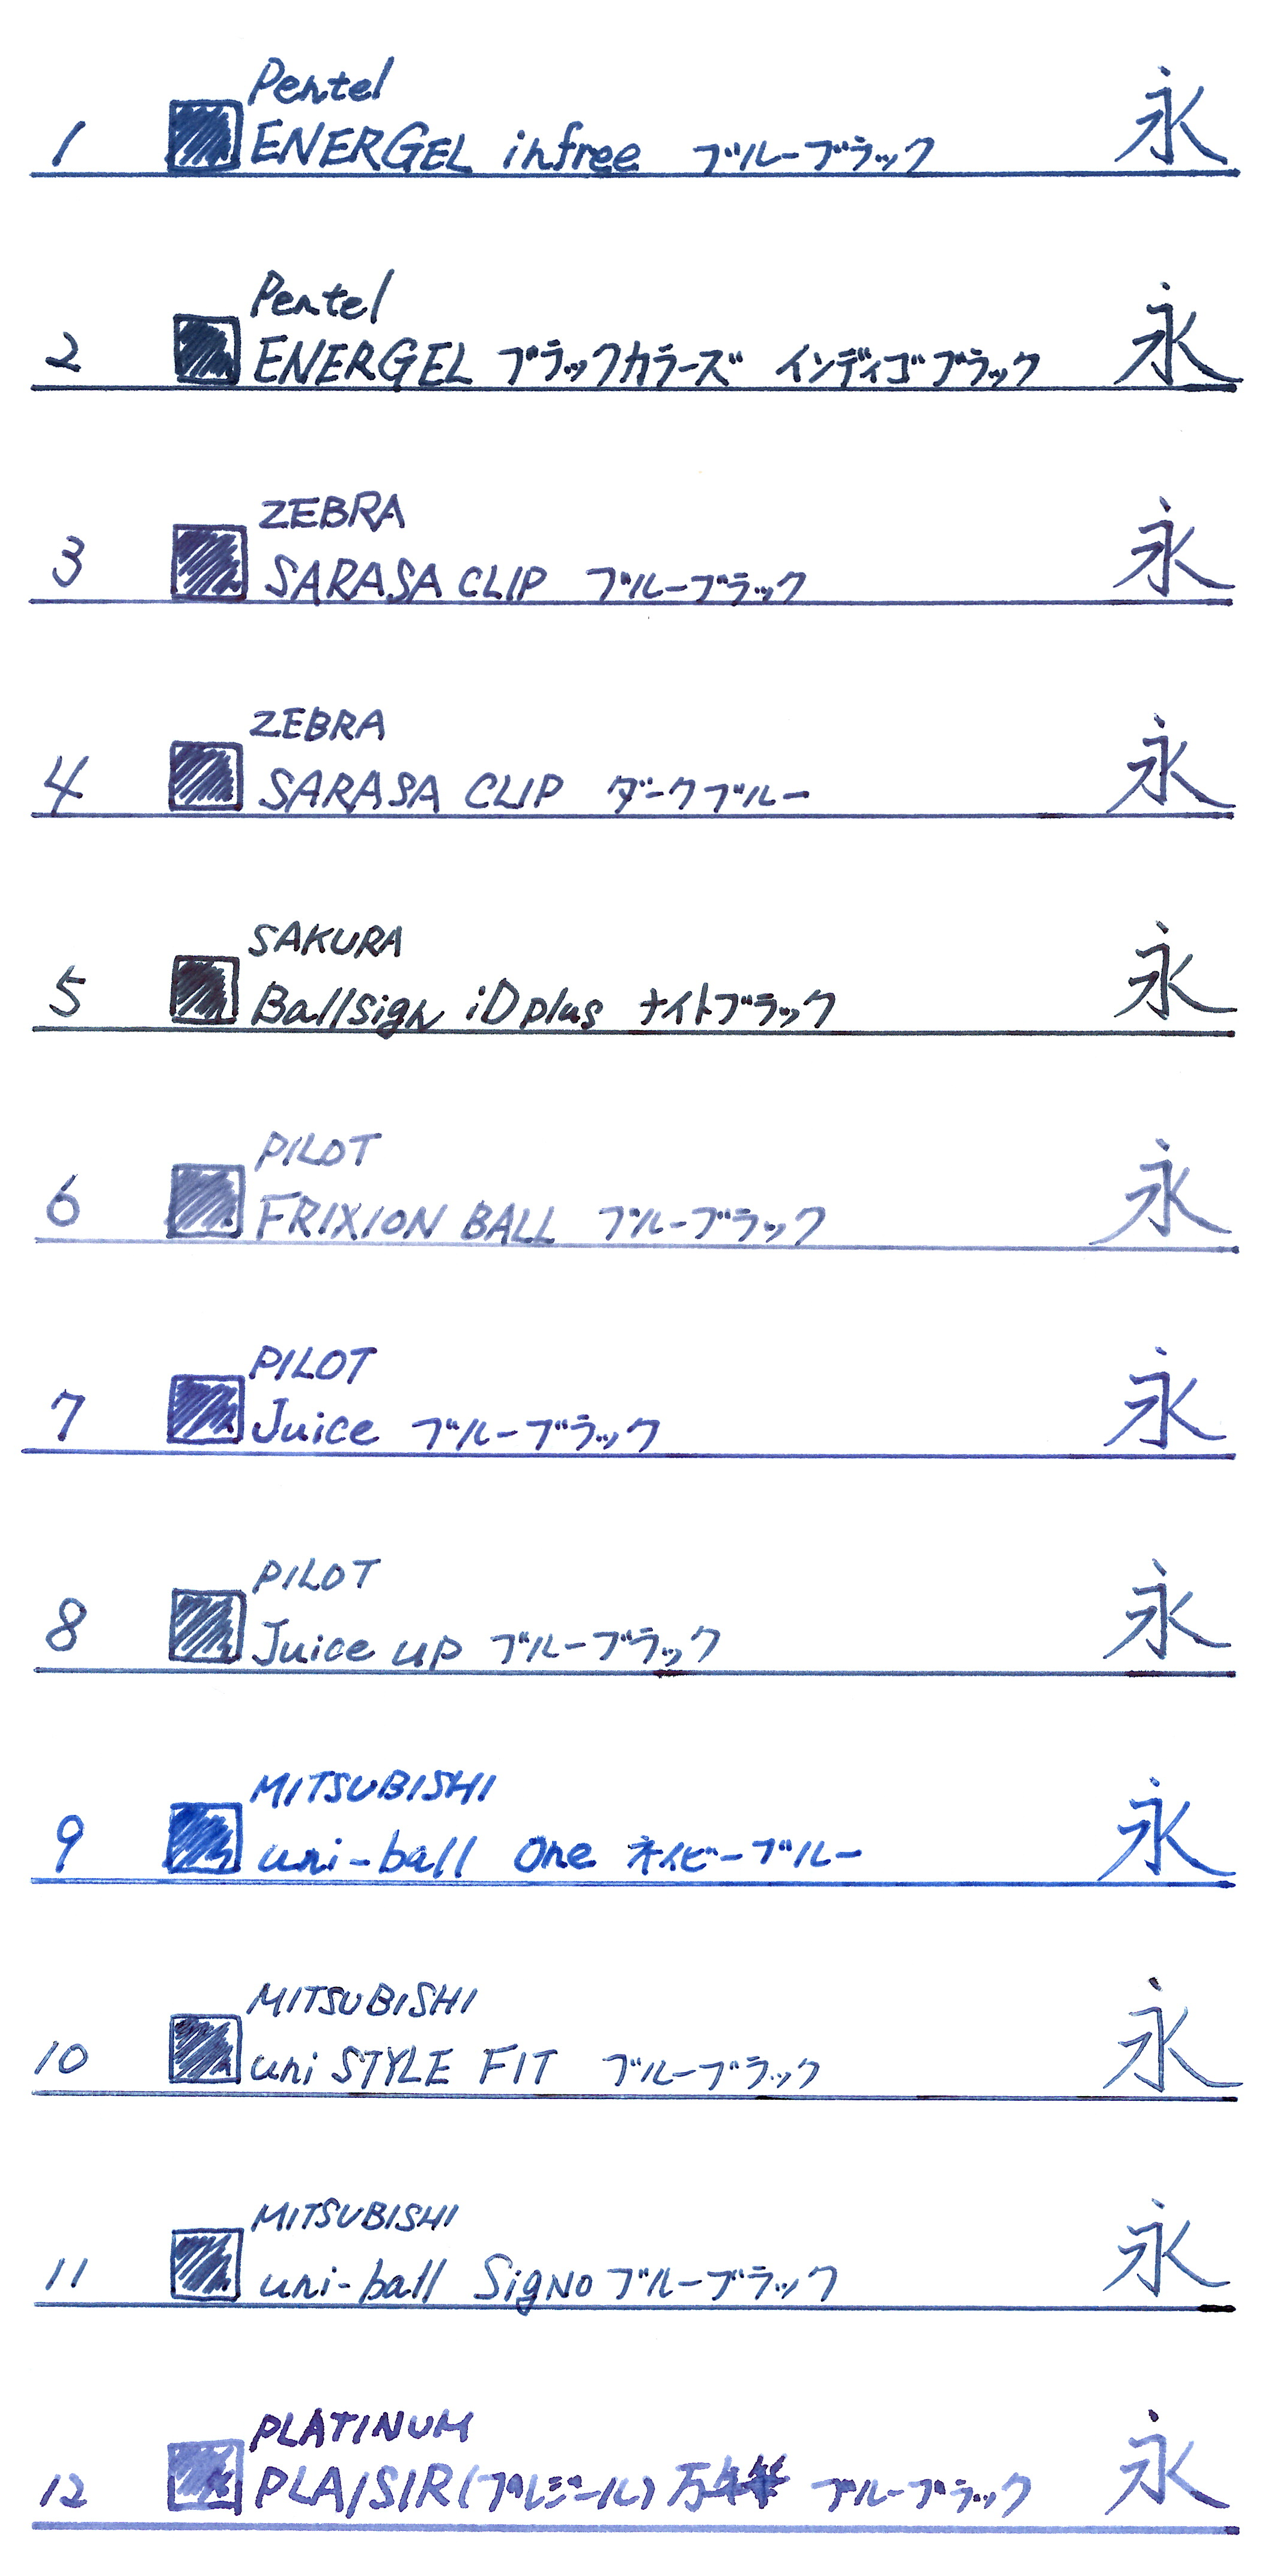 Pentel
1 ENERGEL infree ブルーブラック 永
Pentel
2 ENERGEL ブラックカラーズ インディゴブラック 永
ZEBRA
3 SARASA CLIP ブルーブラック 永
ZEBRA
4 SARASA CLIP ダークブルー 永
SAKURA
5 Ballsign iD plus ナイトブラック 永
PILOT
6 FRIXION BALL ブルーブラック 永
PILOT
7 Juice ブルーブラック 永
PILOT
8 Juice up ブルーブラック 永
MITSUBISHI
9 uni-ball One ネイビーブルー 永
MITSUBISHI
10 uni STYLE FIT ブルーブラック 永
MITSUBISHI
11 uni-ball Signo ブルーブラック 永
PLATINUM
12 PLAISIR(プレジール) 万年筆 ブルーブラック 永